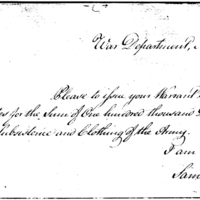 War Department,
Please to issue your Warrant
for the Sum of One hundred thousand
Subsistence and Clothing of the Army.
I am
Sam